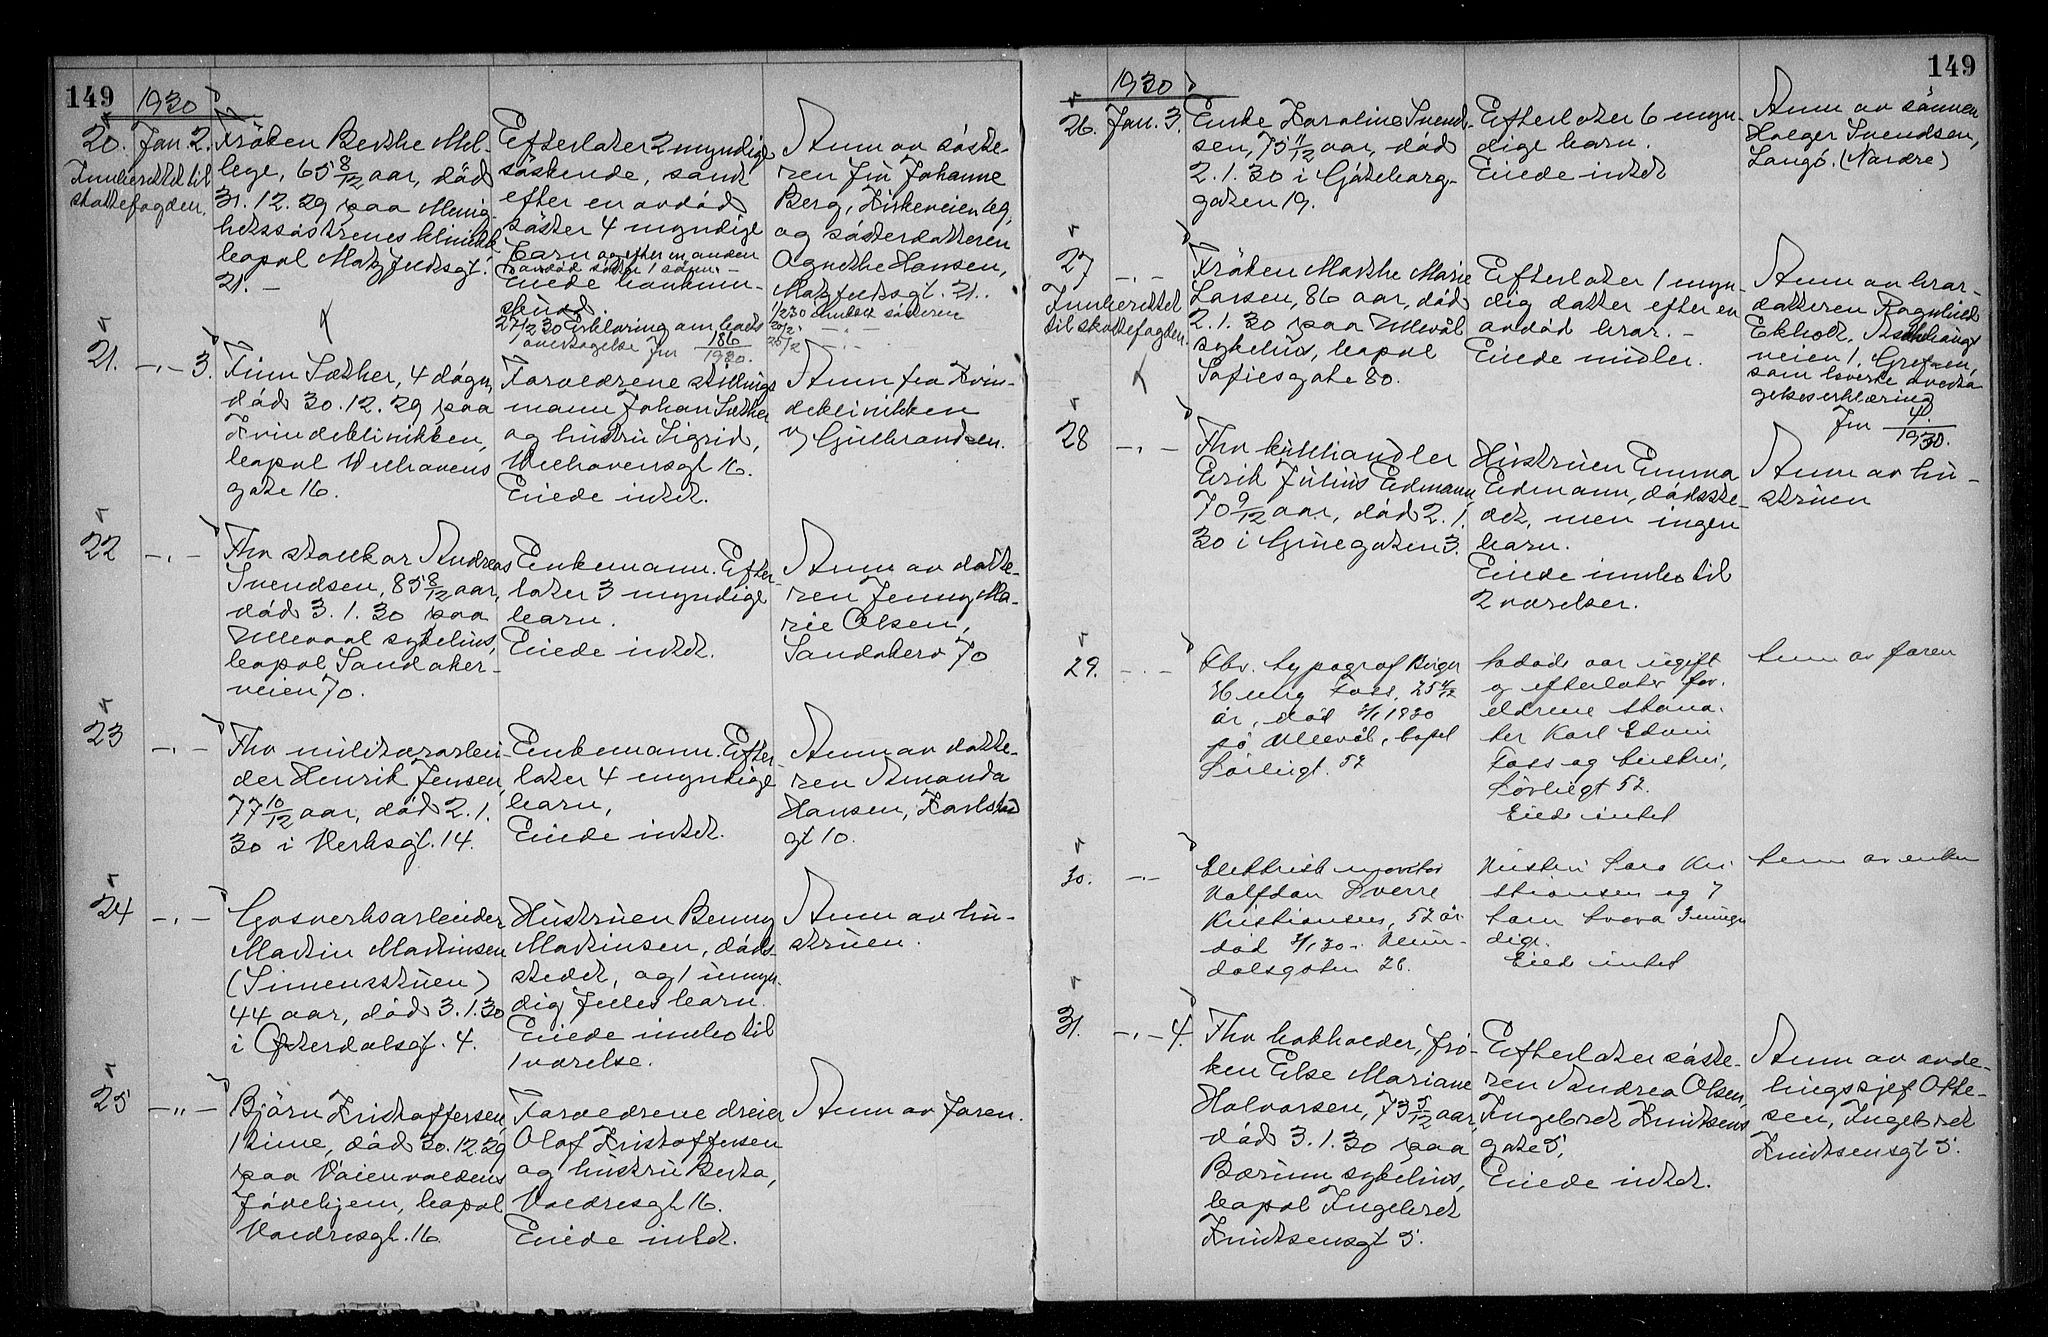 149
1930
20. Jan. 2.
Innberettet til
skattefogden.
Fröken Berthe Mel-
lege, 65 8/12 aar, död
31.12.29 paa Menig-
hetssöstrenes klinikk
bopæl Maʒ
21. —
Efterlater 2 myndige
söskende, samt
efter en avdöd
söster 4 myndige
barn og efter en anden
avdöd söster 1 sönn. —
Eiede bankinn-
skudd.
27/1 30 Erklæring om bods
overtagelse Jnr 186/1930.
Anm av söste-
ren fru Johanne
Berg, Kirkeveien 69,
og sösterdatteren
Agnethe Hansen,
21.
1/2 30 sösteren
21. —„— 3.
Finn Sæther, 4 dögn,
död 30.12.29 paa
Kvindeklinikken,
bopæl Welhavens
gate 16.
Foreldrene stillings
mann Johan Sæther
og hustru Sigrid,
Welhavensgt 16.
Eiede intet.
Anm fra Kvin-
deklinikken
v/ Gulbrandsen.
22 —„—
Fhv stallkar Andreas
Svendsen, 85 8/12 aar,
död 3.1.30 paa
Ullevaal sykehus,
bopæl Sandaker-
veien 70.
Enkemann. Efter-
later 3 myndige
barn.
Eiede intet.
Anm av datte-
ren Jenny Ma-
rie Olsen,
Sandakerv 70
23 —„—
Fhv militærarbei-
der Henrik Jensen,
77 10/12 aar, död 2.1.
30 i Verksgt. 14.
Enkemann. Efter-
later 4 myndige
barn,
Eiede intet.
Anm av datte-
ren Amanda
Hansen, Karlstad
gt 10.
24 —„—
Gasverksarbeider
Martin Martinsen
(Simensstuen)
44 aar, död 3.1.30
i Österdalsgt. 4.
Hustruen Benny
Martinsen, döds-
stedet, og 1 umyn-
dig felles barn.
Eiede innbo til
1 værelse.
Anm av hu-
struen.
25 —„—
Björn Kristoffersen,
1 time, död 30.12.29
paa Vaienvoldens
födehjem, bopæl
Valdresgt. 16
Foreldrene dreier
Olaf Kristoffersen
og hustru Berta,
Valdresgt 16.
Eiede intet.
Anm av faren.
149
1930
26. Jan. 3.
Enke Karoline Svend-
sen, 75 11/12 aar, död
2.1.30 i Göteborg-
gaten 19.
Efterlater 6 myn-
dige barn.
Eiede intet
Anm av sönnen
Holger Svendsen,
Langö. (Nardre)
27 —„—
Innberettet
til skattefogden.
Fröken Marthe Marie
Larsen, 86 aar, död
2.1.30 paa Ullevål
sykehus, bopæl
Sofiesgate 80.
Efterlater 1 myn-
dig datter efter en
avdöd bror. —
Eiede midler.
Anm av bror-
datteren Ragnhild
Ekholt,
veien 1, Grefsen,
som leverte overta
gelseserklæring
Jnr 4/1930.
28 —„—
Fhv kullhandler
Erik Julius Edmann,
70 9/12 aar, död 2.1.
30 i Grünegaten 3.
Hustruen Emma
Edmann, dödsste-
det, men ingen
barn.
Eiede innbo til
2 værelser.
Anm av hu-
struen
29. —„—
Fhv. typograf Birger
Henry Foss, 25 4/12
år, död 2/1 1930
på Ullevål, bopel
Sörligt. 52
Avdöde var ugift
og efterlater for-
eldrene
Karl Edvin
Foss og hustru,
Sörligt 52.
Eiede intet
Anm av faren
30. —„—
Elektrisk montör
Halfdan Sverre
Kristiansen, 52 år
död 2/1 30 i Heim-
dalsgaten 26.
Hustru Sara Kri
stiansen og 7
barn hvorav 3 umyn
dige.
Eiede intet
Anm av enken
31. —„— 4.
Fhv bokholder, frö-
ken Else Mariane
Halvorsen, 73 5/12 aar,
död 3.1.30 paa
Bærum sykehus,
bopæl Ingebret
Knudsensgt 5.
Efterlater söste-
ren Andrea Olsen,
Ingebret Knudsens
gate 5.
Eiede intet.
Anm av avde-
lingssjef Otte-
sen, Ingebret
Knudsensgt 5.